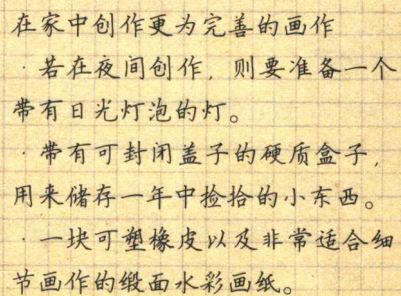 在家中创作更为完善的画作
·若在夜间创作,则要准备一个
带有日光灯泡的灯。
·带有可封闭盖子的硬质盒子,
用来储存一年中捡拾的小东西。
·一块可塑橡皮以及非常适合细
节画作的缎面水彩画纸。